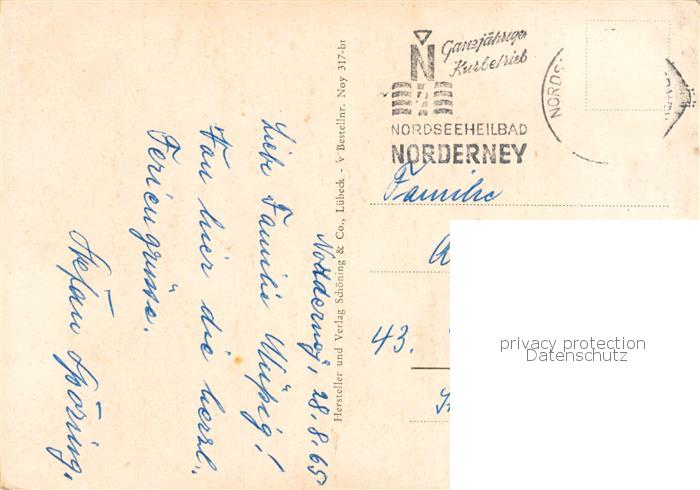 Norderney, 28.8.65
Liebe Familie
Von hier die herzl.
Feriengrüsse.
Stefan
Hersteller und Verlag Schöning & Co., Lübeck - v Bestellnr. Noy 317-br
Ganzjähriger
Kurbetrieb
N
NORDSEEHEILBAD
NORDERNEY
NORDS
Familie
43.
privacy protection
Datenschutz